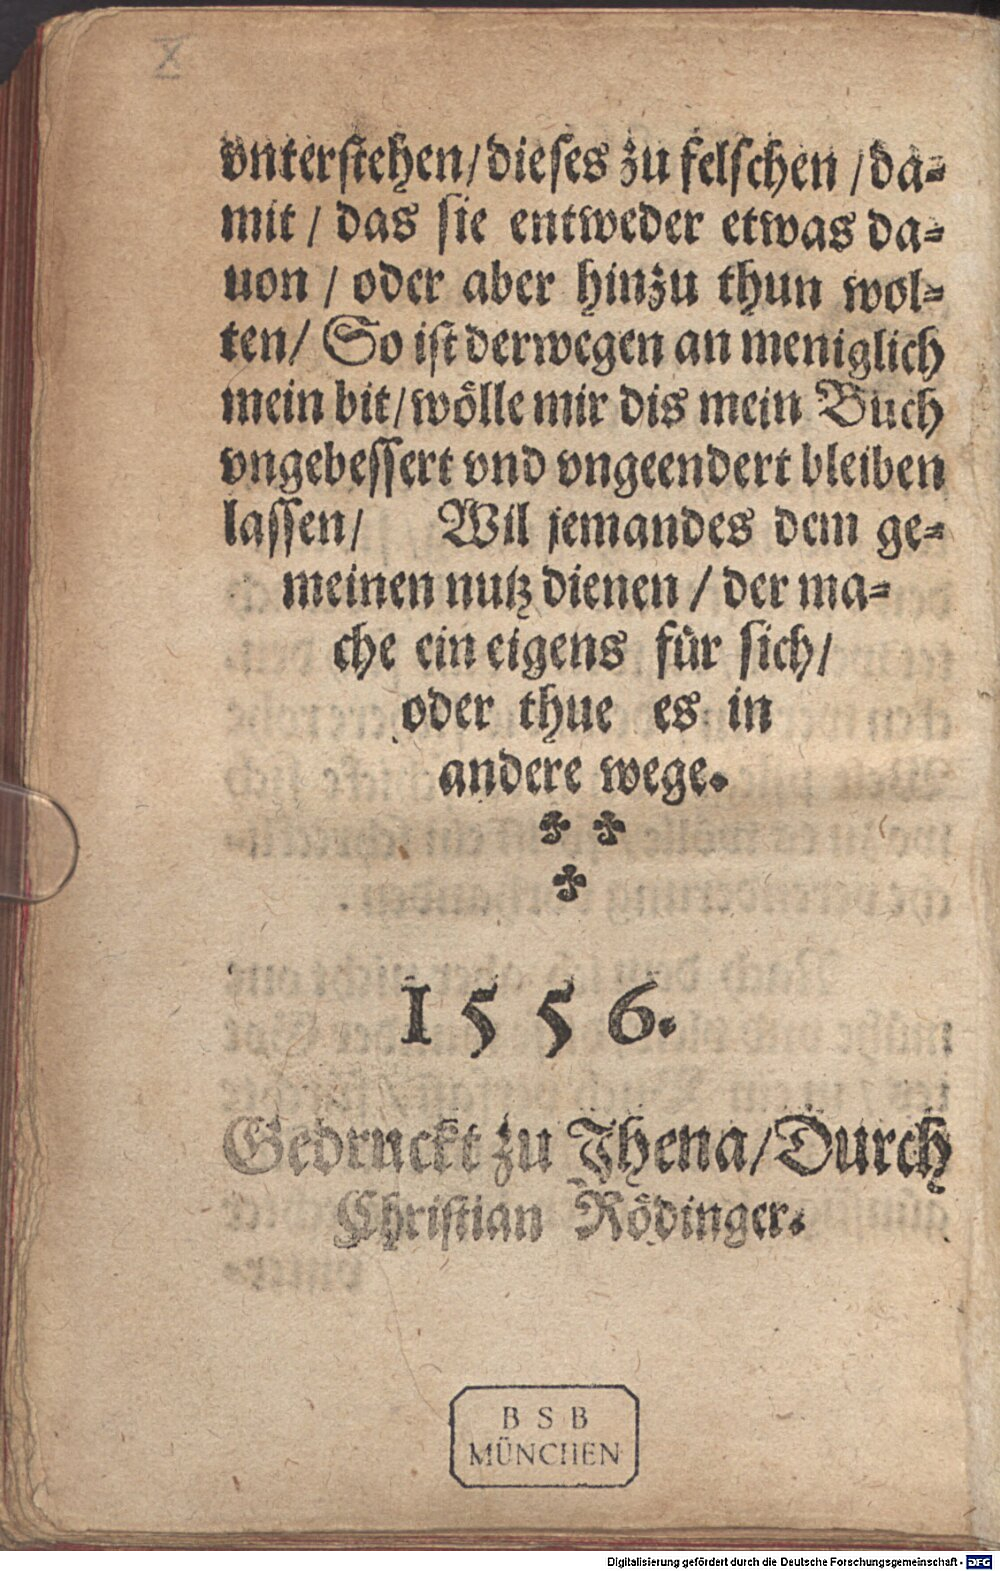 X
vnterstehen/dieses zu felschen /da=
mit / das sie entweder etwas da=
uon / oder aber hinzu thun wol=
ten/ So ist derwegen an meniglich
mein bit/wölle mir dis mein Buch
vngebessert vnd vngeendert bleiben
lassen/ Wil jemandes dem ge=
meinen nutz dienen / der ma=
che ein eigens für sich/
oder thue es in
andere wege.
1556.
Gedruckt zu Jhena/Durch
Christian Rödinger.
B S B
MÜNCHEN
Digitalisierung gefördert durch die Deutsche Forschungsgemeinschaft - DFG